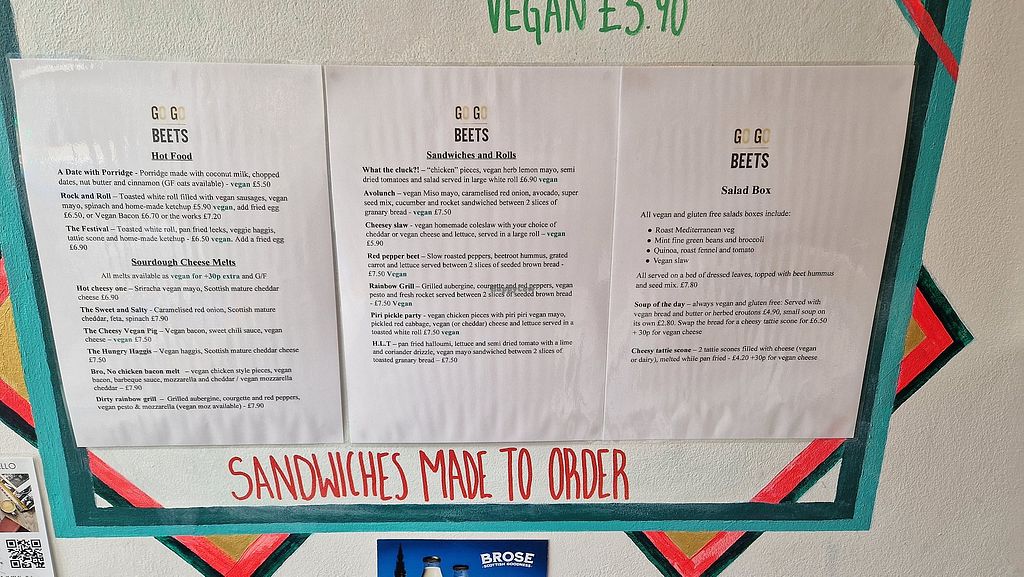 VEGAN £3.90
GO GO
BEETS
Hot Food
A Date with Porridge - Porridge made with coconut milk, chopped
dates, nut butter and cinnamon (GF oats available) - vegan £5.50
Rock and Roll – Toasted white roll filled with vegan sausages, vegan
mayo, spinach and home-made ketchup £5.90 vegan, add fried egg
£6.50, or Vegan Bacon £6.70 or the works £7.20
The Festival – Toasted white roll, pan fried leeks, veggie haggis,
tattie scone and home-made ketchup - £6.50 vegan. Add a fried egg
£6.90
Sourdough Cheese Melts
All melts available as vegan for +30p extra and G/F
Hot cheesy one – Sriracha vegan mayo, Scottish mature cheddar
cheese £6.90
The Sweet and Salty - Caramelised red onion, Scottish mature
cheddar, feta, spinach £7.90
The Cheesy Vegan Pig – Vegan bacon, sweet chili sauce, vegan
cheese – vegan £7.50
The Hungry Haggis – Vegan haggis, Scottish mature cheddar cheese
£7.50
Bro, No chicken bacon melt – vegan chicken style pieces, vegan
bacon, barbeque sauce, mozzarella and cheddar / vegan mozzarella
cheddar – £7.90
Dirty rainbow grill – Grilled aubergine, courgette and red peppers,
vegan pesto & mozzarella (vegan moz available) - £7.90
GO GO
BEETS
Sandwiches and Rolls
What the cluck?! – “chicken” pieces, vegan herb lemon mayo, semi
dried tomatoes and salad served in large white roll £6.90 vegan
Avolunch – vegan Miso mayo, caramelised red onion, avocado, super
seed mix, cucumber and rocket sandwiched between 2 slices of
granary bread - vegan £7.50
Cheesey slaw - vegan homemade coleslaw with your choice of
cheddar or vegan cheese and lettuce, served in a large roll – vegan
£5.90
Red pepper beet – Slow roasted peppers, beetroot hummus, grated
carrot and lettuce served between 2 slices of seeded brown bread -
£7.50 Vegan
Rainbow Grill – Grilled aubergine, courgette and red peppers, vegan
pesto and fresh rocket served between 2 slices of seeded brown bread
- £7.50 Vegan
Piri pickle party - vegan chicken pieces with piri piri vegan mayo,
pickled red cabbage, vegan (or cheddar) cheese and lettuce served in a
toasted white roll £7.50 vegan
H.L.T – pan fried halloumi, lettuce and semi dried tomato with a lime
and coriander drizzle, vegan mayo sandwiched between 2 slices of
toasted granary bread – £7.50
GO GO
BEETS
Salad Box
All vegan and gluten free salads boxes include:
• Roast Mediterranean veg
• Mint fine green beans and broccoli
• Quinoa, roast fennel and tomato
• Vegan slaw
All served on a bed of dressed leaves, topped with beet hummus
and seed mix. £7.80
Soup of the day – always vegan and gluten free: Served with
vegan bread and butter or herbed croutons £4.90, small soup on
its own £2.80. Swap the bread for a cheesy tattie scone for £6.50
+ 30p for vegan cheese
Cheesy tattie scone – 2 tattie scones filled with cheese (vegan
or dairy), melted while pan fried - £4.20 +30p for vegan cheese
SANDWICHES MADE TO ORDER
BROSE
SCOTTISH GOODNESS